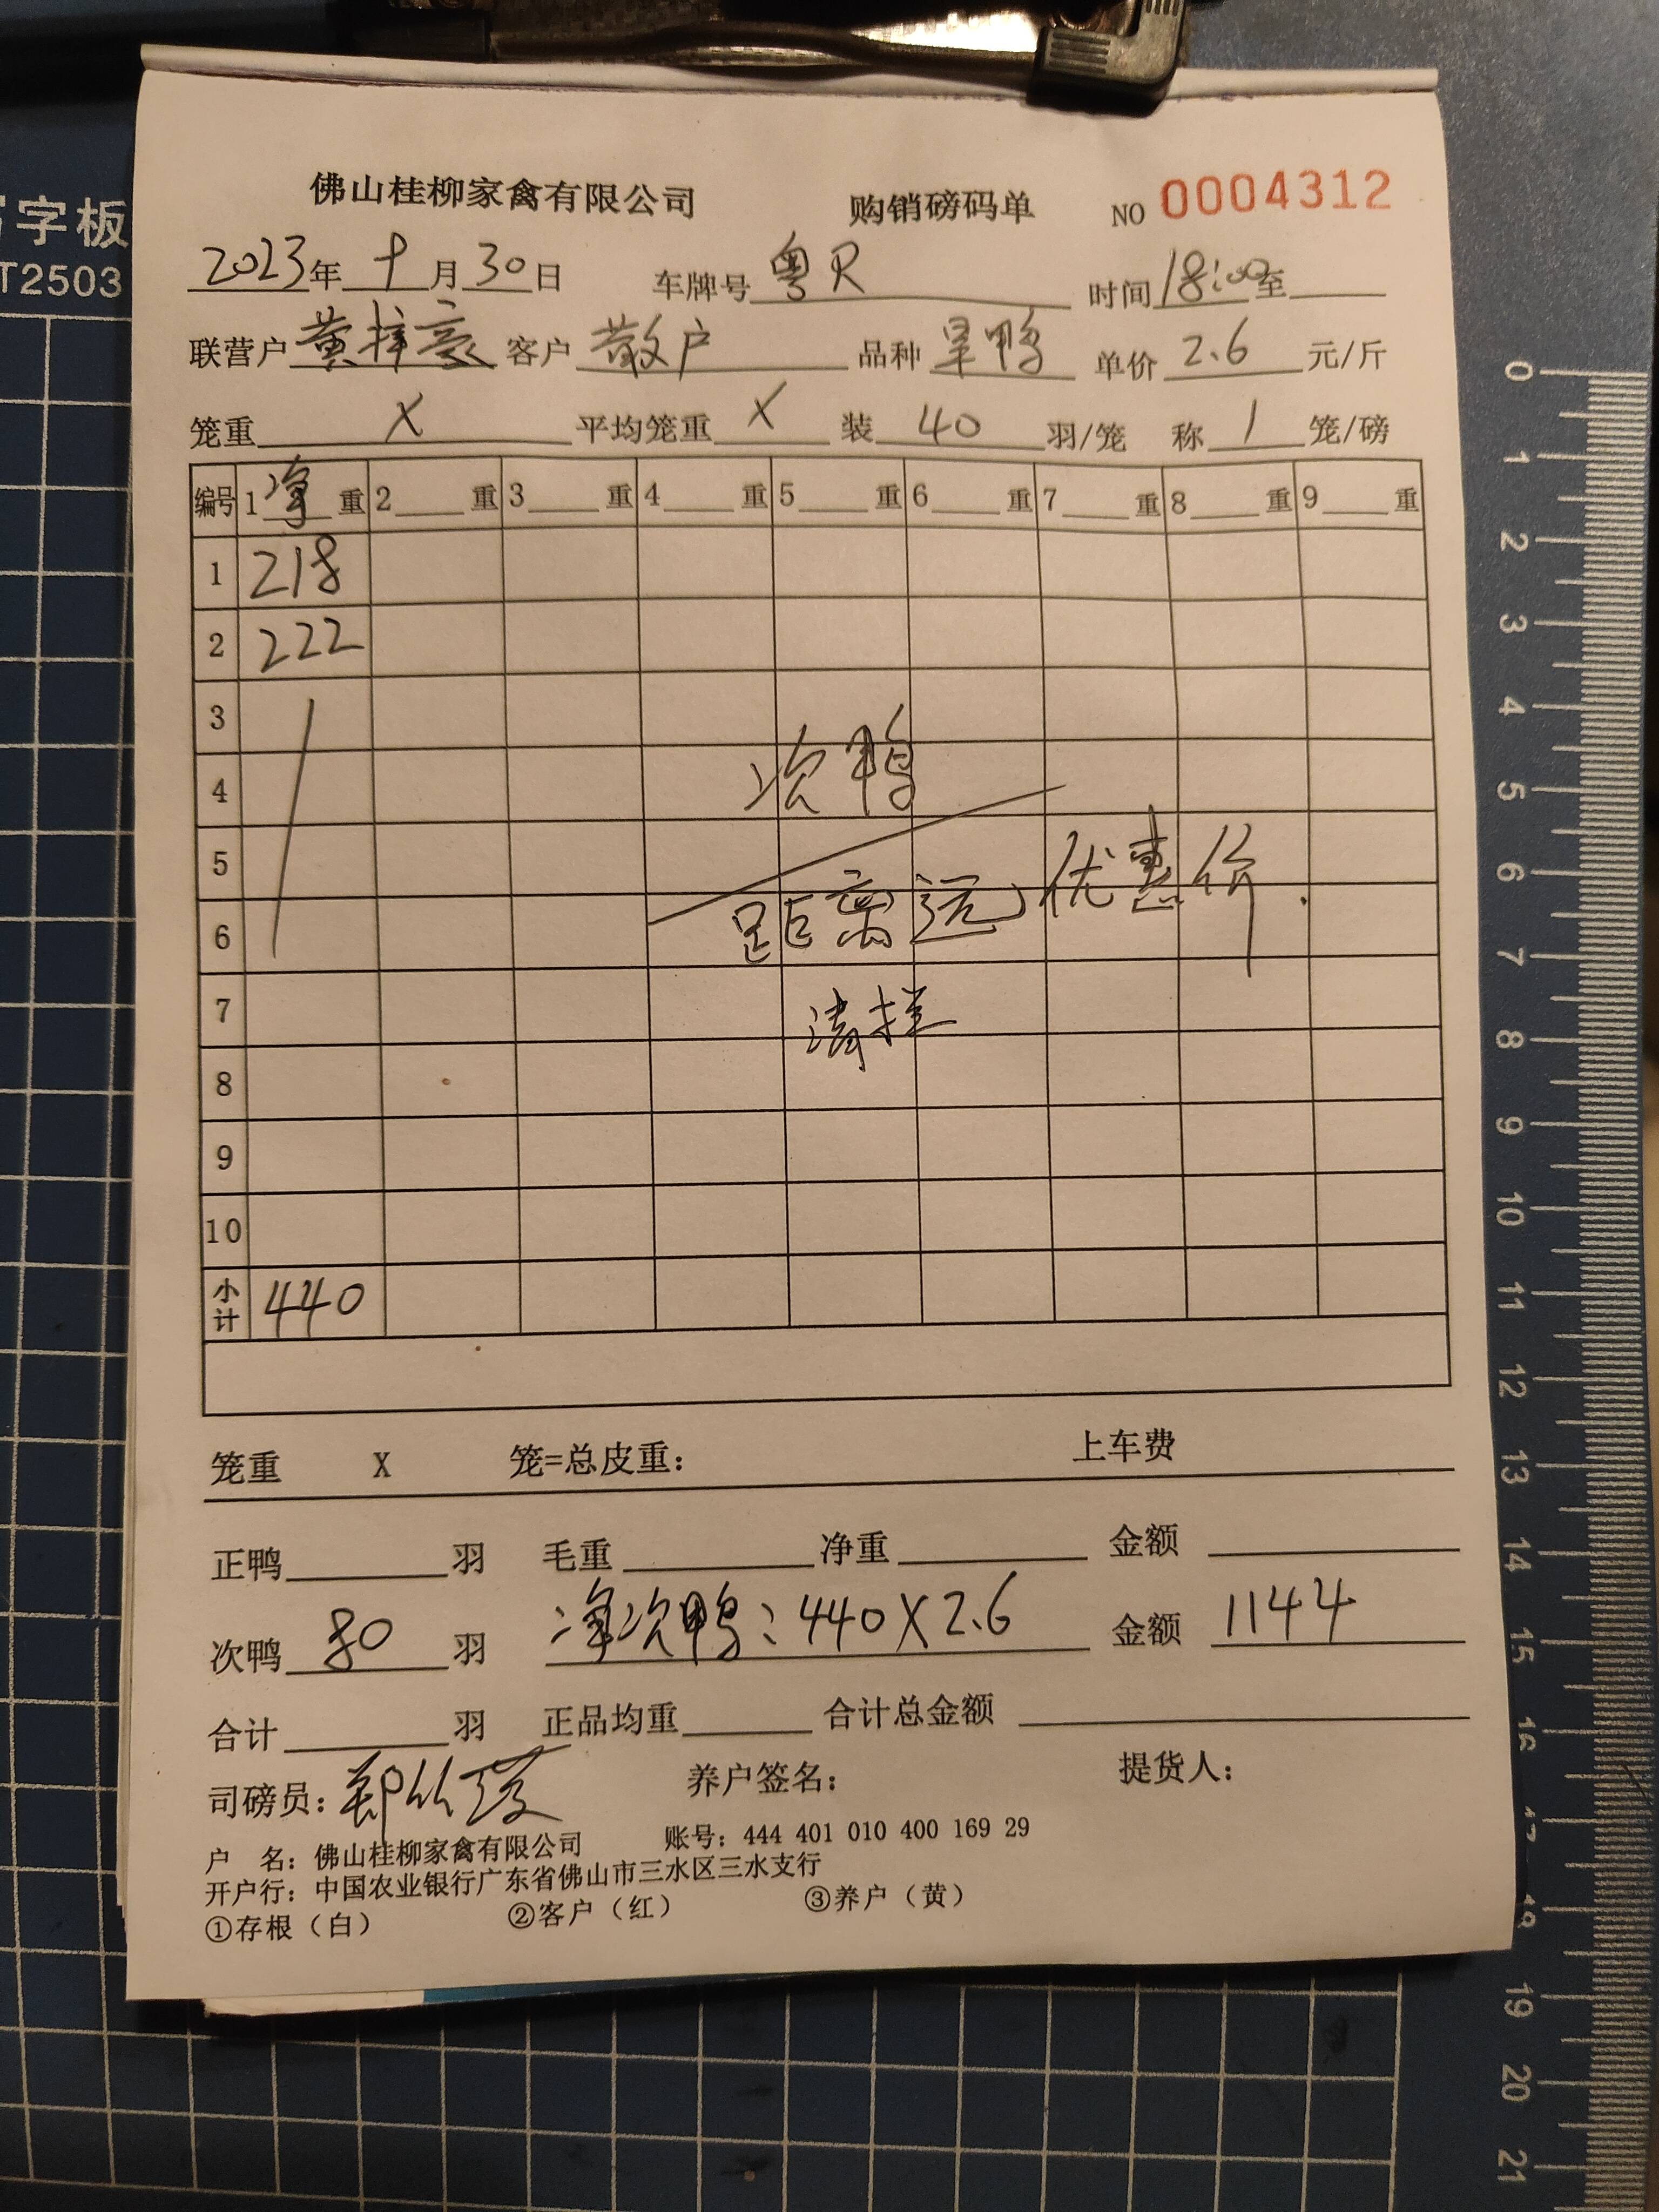 字板
T2503
佛山桂柳家禽有限公司 购销磅码单 NO 0004312
2023年 十 月 30 日 车牌号 粤R 时间 18:00 至
联营户 黄梓豪 客户 散户 品种 旱鸭 单价 2.6 元/斤
笼重 X 平均笼重 X 装 40 羽/笼 称 1 笼/磅
编号 1 净 重 2 重 3 重 4 重 5 重 6 重 7 重 8 重 9 重
1 218
2 222
3
4 次鸭
5 优惠价.
6 距离远
7 清拦
8
9
10
小计 440
笼重 X 笼=总皮重: 上车费
正鸭 羽 毛重 净重 金额
次鸭 80 羽 净次鸭: 440X2.6 金额 1144
合计 羽 正品均重 合计总金额
司磅员: 养户签名: 提货人:
户 名: 佛山桂柳家禽有限公司 账号: 444 401 010 400 169 29
开户行: 中国农业银行广东省佛山市三水区三水支行
①存根(白) ②客户(红) ③养户(黄)
0
1
2
3
4
5
6
7
8
9
10
11
12
13
14
15
16
17
18
19
20
21